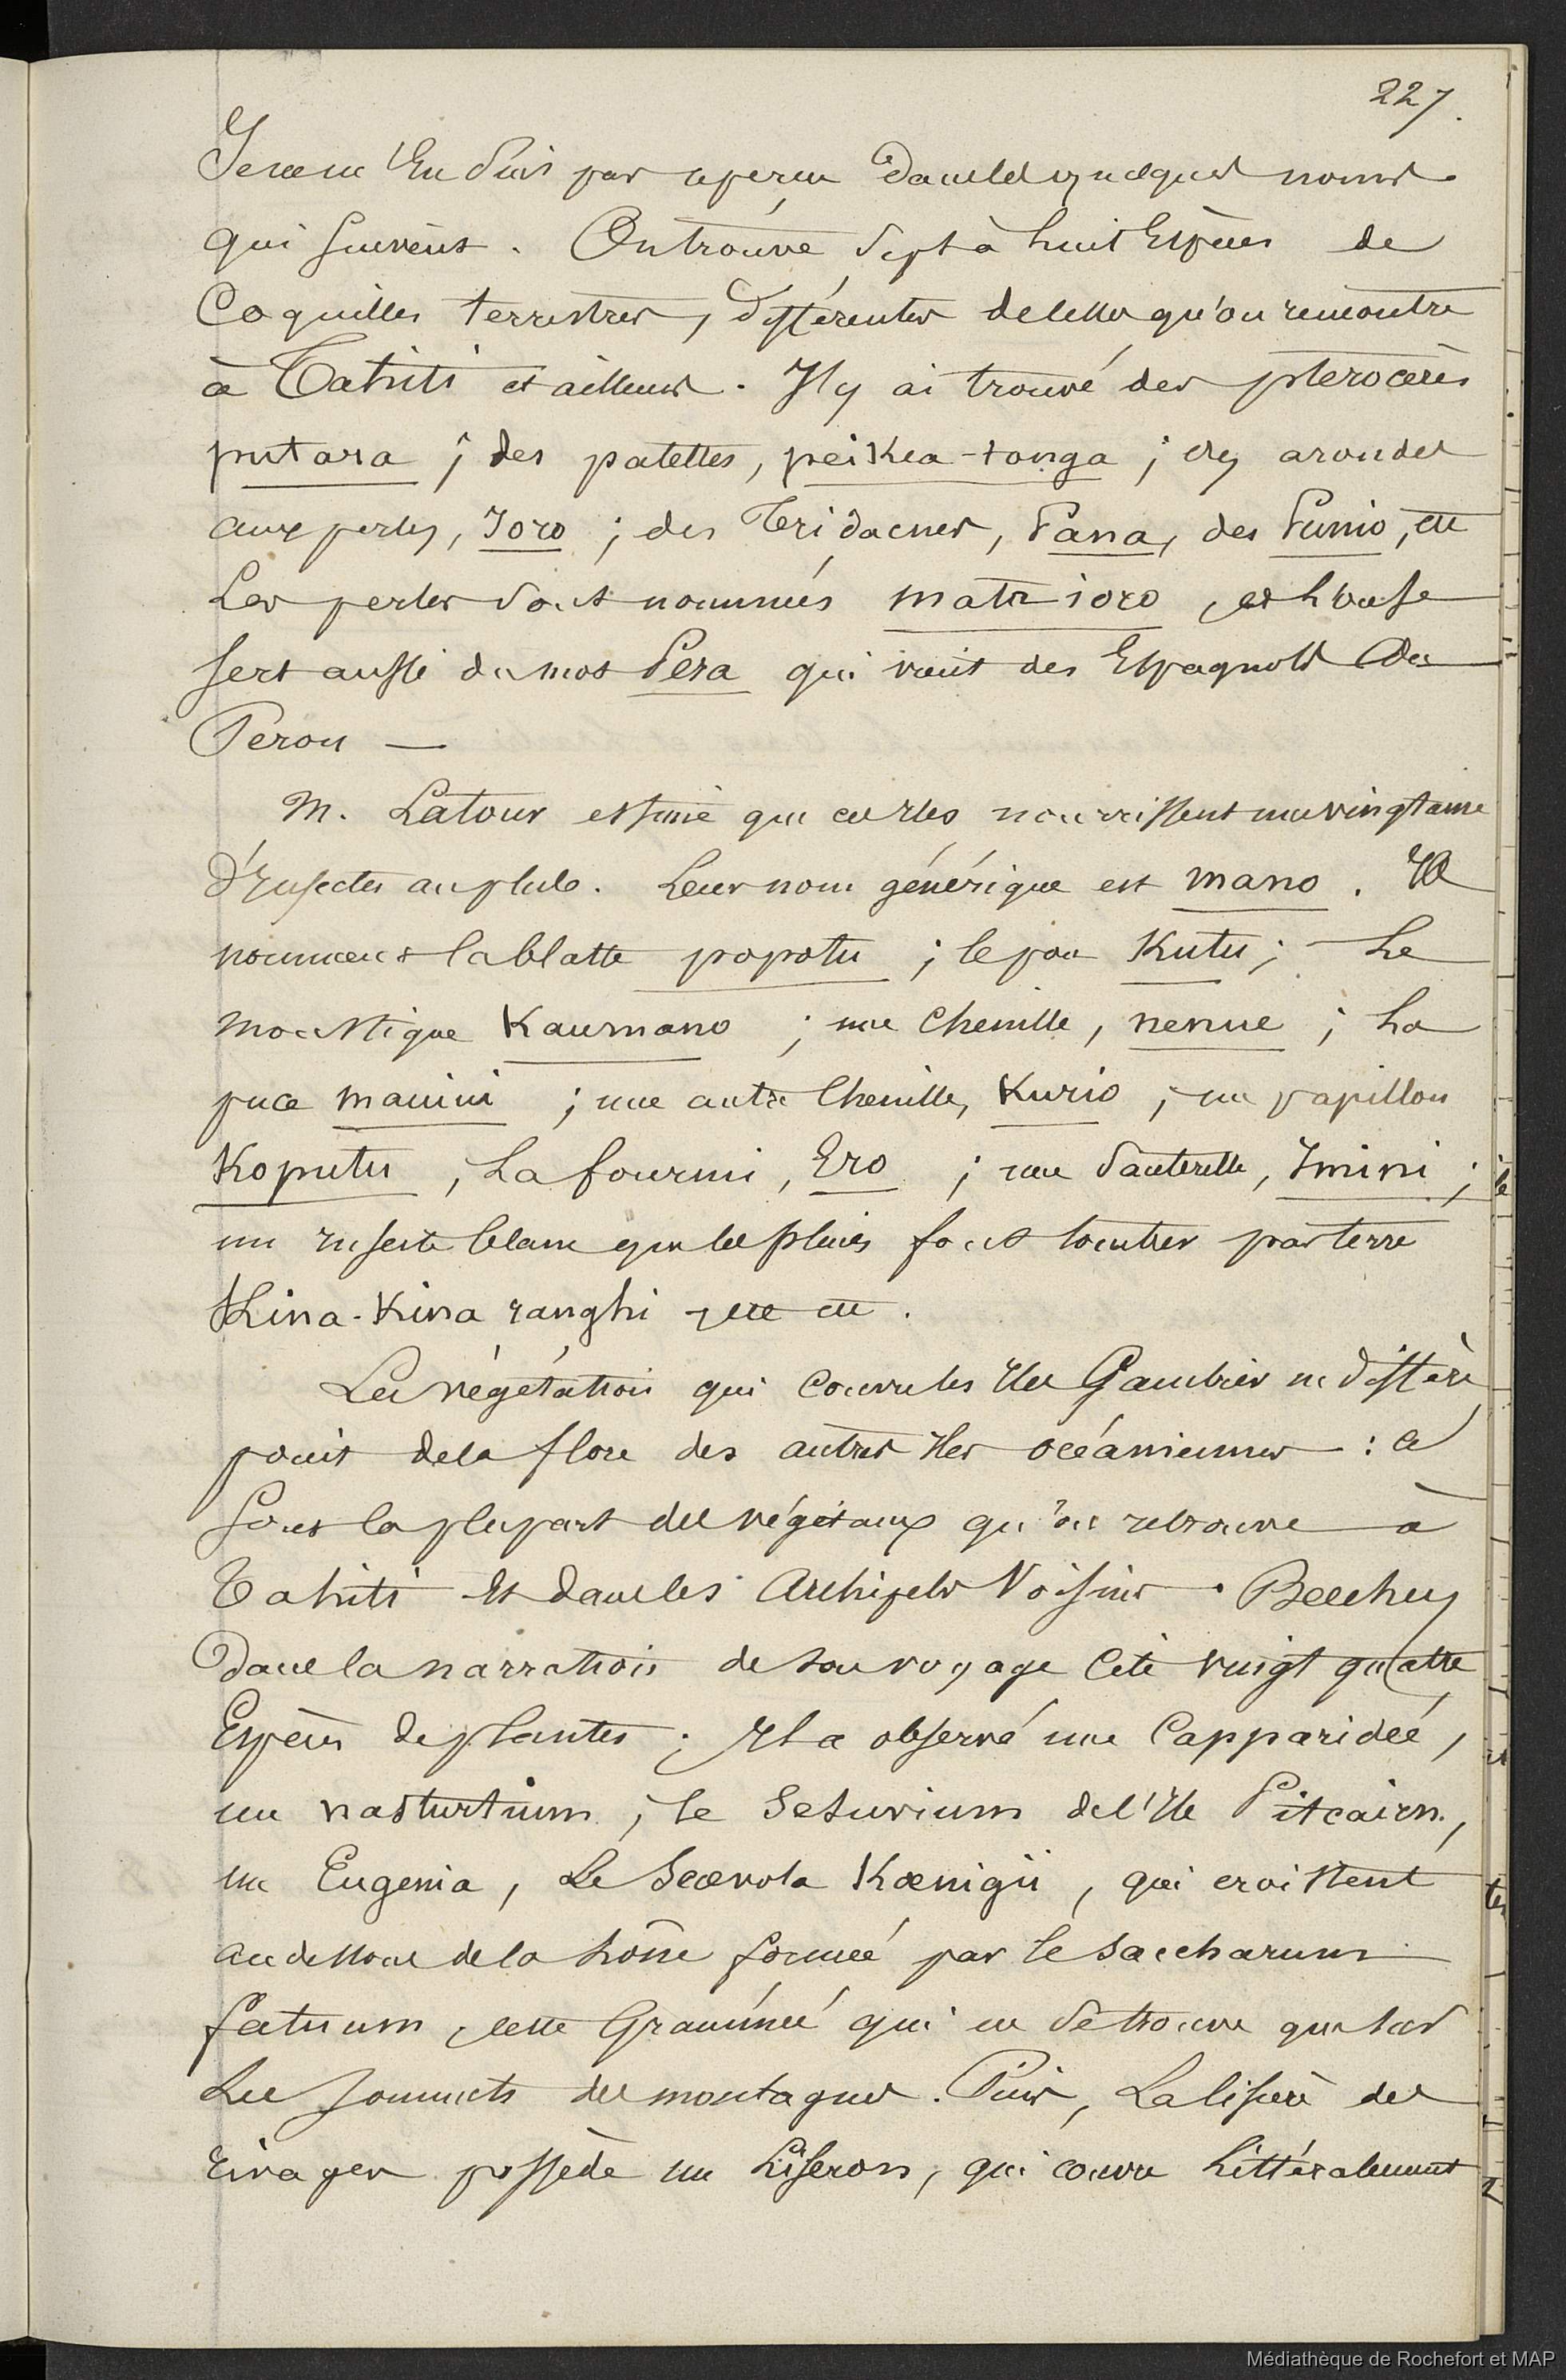 227.
Je ne m'en suis pas aperçu dans les quelques noms
qui suivent. On trouve sept à huit Espèces de
Coquilles terrestres, différentes de celles qu'on rencontre
à Tahiti et ailleurs. J'ly ai trouvé des pterocères
putara ; des patelles, peikea-tonga ; des arondes
aux perles, Joro ; des Tridacnes, Pana, des Punio, etc
Les perles sont nommées mata ioro , et
sert aussi du mot Pera qui vient des Espagnols du
Perou —
M. Latour estime que ces Iles nourrissent une vingtaine
d'Insectes au plus. Leur nom générique est mano. Ils
nomment la blatte popotu ; le pou Kutu ; Le
moustique Kaumano ; une Chenille, nenue ; La
puce manini ; une autre Chenille, Kurio ; un papillon
Koputu , La fourmi, Ero ; une Sauterelle, Imini ;
un insecte blanc que les pluies font tomber par terre
Kina-Kina ranghi etc.
La végétation qui couvre les Iles Gambier ne diffère
point de la flore des autres Iles océaniennes : ce
sont la plupart des végétaux qu'on retrouve à
Tahiti Et dans les Archipels Voisins. Beechey
Dans la narration de son voyage Cite vingt quatre
Espèces de plantes ; Il a observé une Capparidée,
un nasturtium, le Sesuvium de l'Ile Pitcairn,
un Eugenia, Le Scœvola Kœnigii, qui croissent
au dessous de la Zône formée par le Saccharum
fatuum, cette Graminée qui ne se trouve que sur
Les Sommets des montagnes. Puis, La lisière des
rivages possède un Liseron, qui couvre Littéralement
Médiathèque de Rochefort et MAP